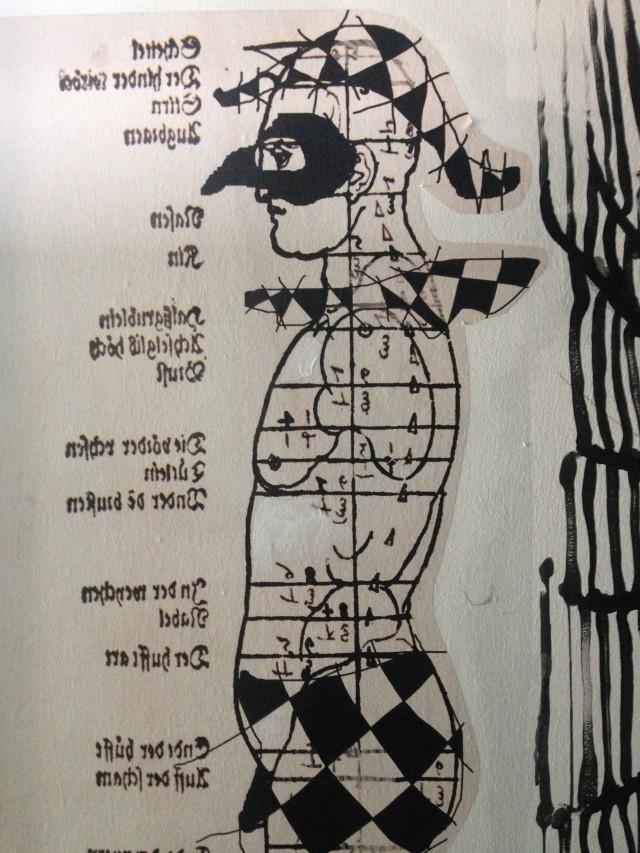 Der hinder
Stirn
Augbraen
Nasen
Kin
Halßgrüblein
Achselglid höch
Brust
Die vörder vchsen
Tütlein
Vnder dē brüsten
In der weychen
Nabel
Der hufft art
Ende der hüfft
Auff der scham